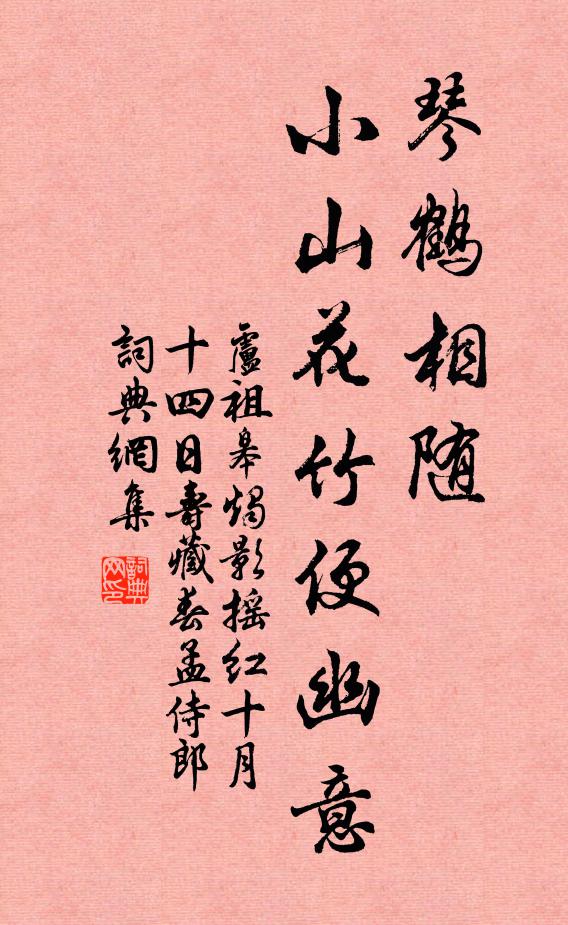 琴鶴相随
小山花竹便幽意
盧祖皋燭影摇红十月
十四日壽藏春孟侍郎
詞典網集
詞典网印